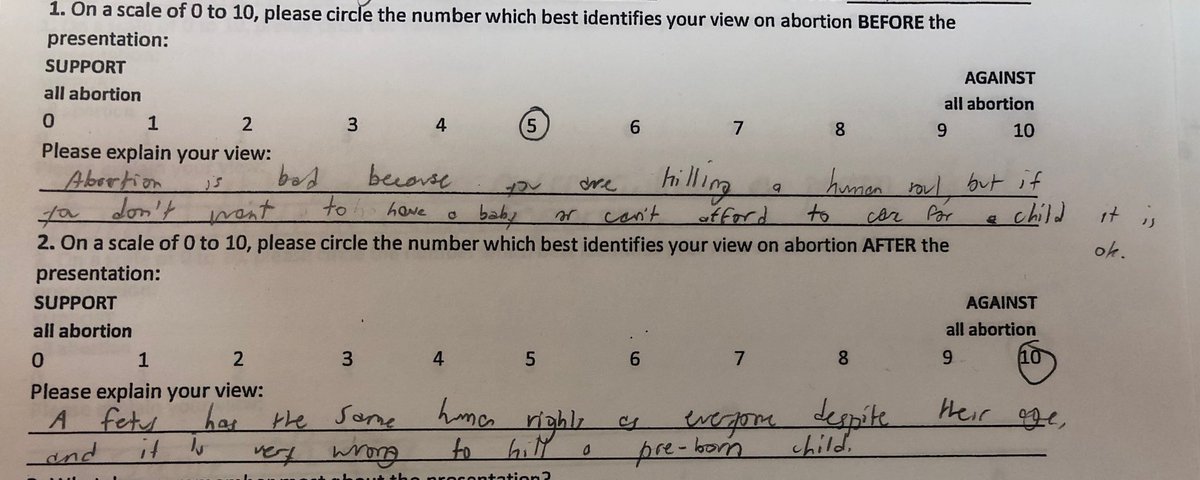 1. On a scale of 0 to 10, please circle the number which best identifies your view on abortion BEFORE the
presentation:
SUPPORT
AGAINST
all abortion
all abortion
0 1 2 3 4 5 6 7 8 9 10
Please explain your view:
Abortion is bad because you are killing a human soul but if
you don't want to have a baby or can't afford to car for a child it is
ok.
2. On a scale of 0 to 10, please circle the number which best identifies your view on abortion AFTER the
presentation:
SUPPORT
AGAINST
all abortion
all abortion
0 1 2 3 4 5 6 7 8 9 10
Please explain your view:
A fetus has the same human rights as everyone despite their age,
and it is very wrong to kill a pre-born child.
about the presentation?